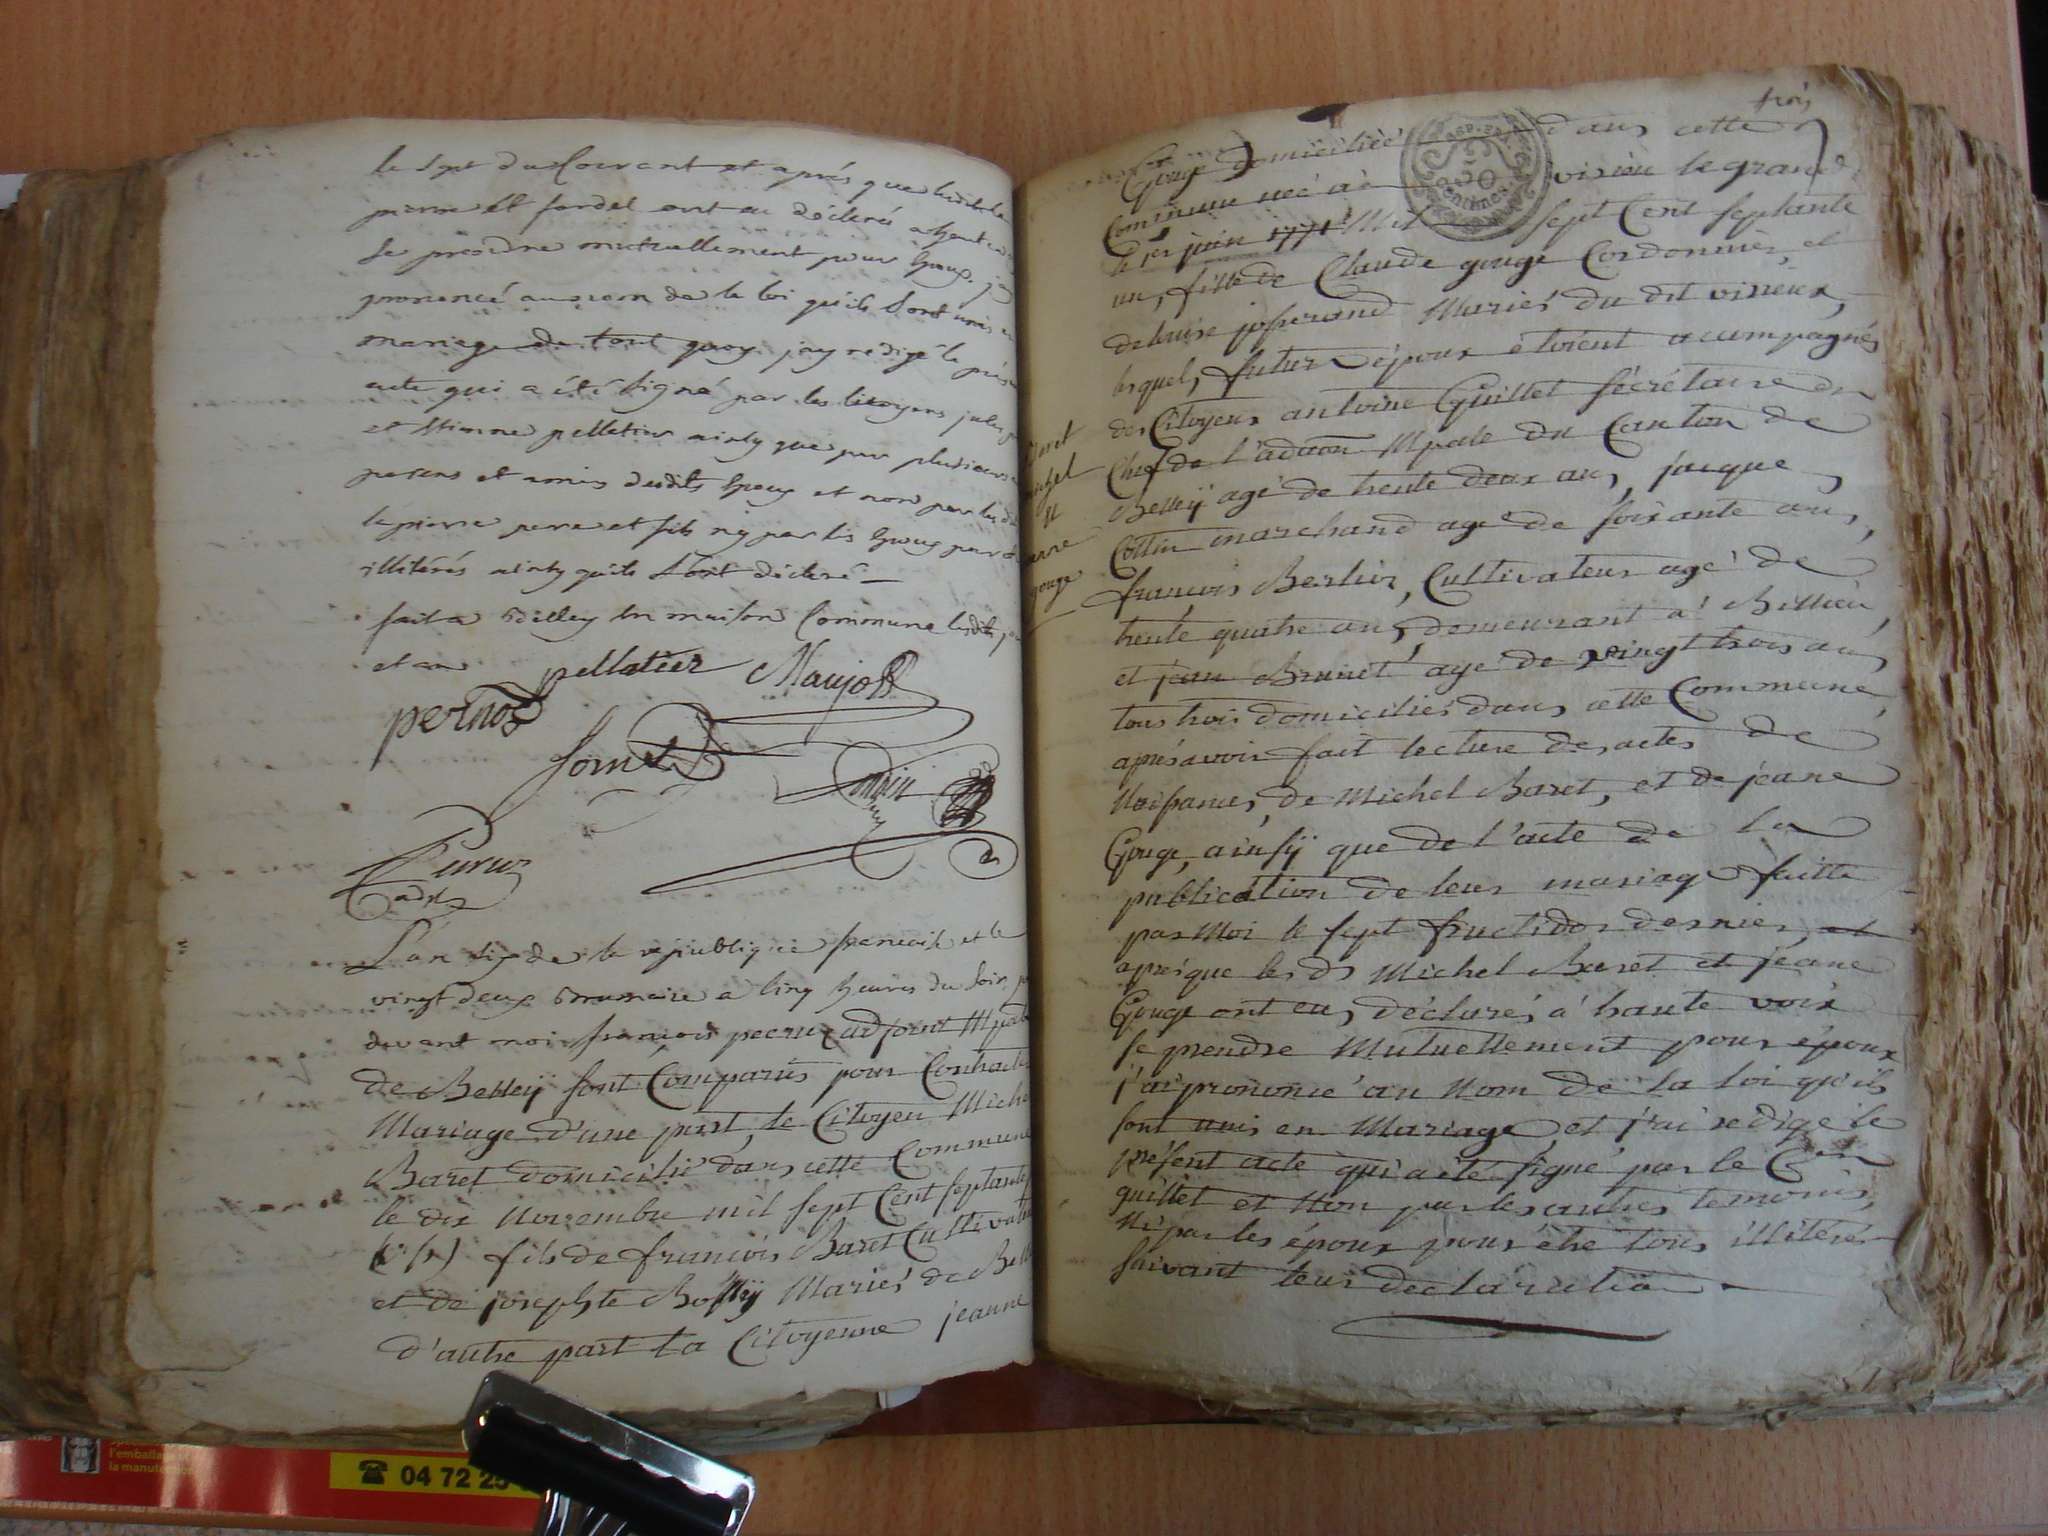 le sept du Courant et après que ledit la
pierre et fardel ont eu déclaré a haute
se prendre mutuellement pour Epoux, jay
prononcé au nom de la loi qu'ils sont unis en
mariage de tout quoy jay rédigé le prése
acte qui a été signé par les Citoyens
et Etienne pelletier ainsy que par plusieurs
parens et amis desdits Epoux et non par les
lapierre pere et fils ny par les Epoux pour
illitérés ainsy quils sont déclaré
fait a Belley en maison Commune lesdits jo
et an
pellatier Maujot
pernod
Peruz
adjt
L'an six de la republique francaise et le
vingt deux Brumaire a Cinq heures du Soir, p
devant moi francois peeruz adjoint Mpal
de Belleÿ sont Comparus pour Contracter
Mariage d'une part, le Citoyen Miche
Baret domicilié dans cette Commune
le dix Novembre mil sept Cent septante
fils de francois Baret Cultivateur
et de josephte Mariés de Bell
d'autre part la Citoyenne jeanne
trois
Gouge domiciliée dans cette
Commune née à virieu le grand
REP. FRA
50
Centimes
le 1er juin 1771 Mil sept Cent septante
un, fille de Claude gouge Cordonnier, et
delouise josserand Mariés du dit virieux,
lesquels futur époux étoient acompagnés
des Citoyens antoine Guillet sécrétaire en
Chef de l'adaon Mpale du Canton de
Belleÿ agé de trente deux ans, jacque
Cottin marchand agé de soixante ans,
francois Berlier, Cultivateur agé de
trente quatre ans, demeurant à Billieu
et jean Brunet agé de vingt trois ans
tous trois domiciliés dans cette Commune,
aprés avoir fait lecture des actes de
Naissances, de Michel Baret, et de jeane
Gouge, ainsÿ que de l'acte de la
publication de leur mariage faitte
par Moi le sept fructidor dernier, et
aprèsque les ds Michel Baret et jeane
Gouge ont eus déclarés à haute voix
se prendre Mutuellement pour époux
j'ai prononcé au Nom de la loi qu'ils
sont unis en Mariage, et j'ai redigé le
présent acte qui a été signé par le Cen
guillet et Non par les autres temoins,
Ni par les époux pour être tous illitérés
suivant leur declaration
Baret
michel
et
jeanne
gouge
l'emballa
la manuten
04 72 25